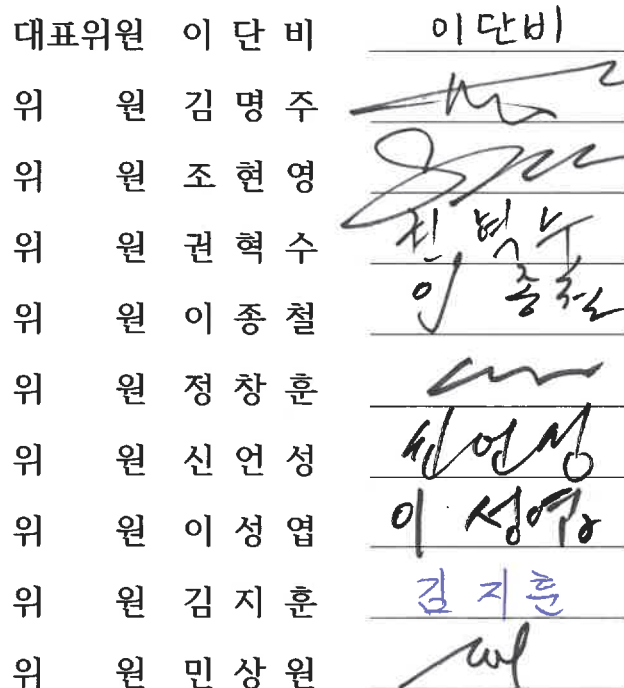 대표위원 이 단 비 이단비
위 원 김 명 주
위 원 조 현 영
위 원 권 혁 수 권 혁 수
위 원 이 종 철 이 종철
위 원 정 창 훈
위 원 신 언 성 신언성
위 원 이 성 엽 이 성엽
위 원 김 지 훈 김 지 훈
위 원 민 상 원